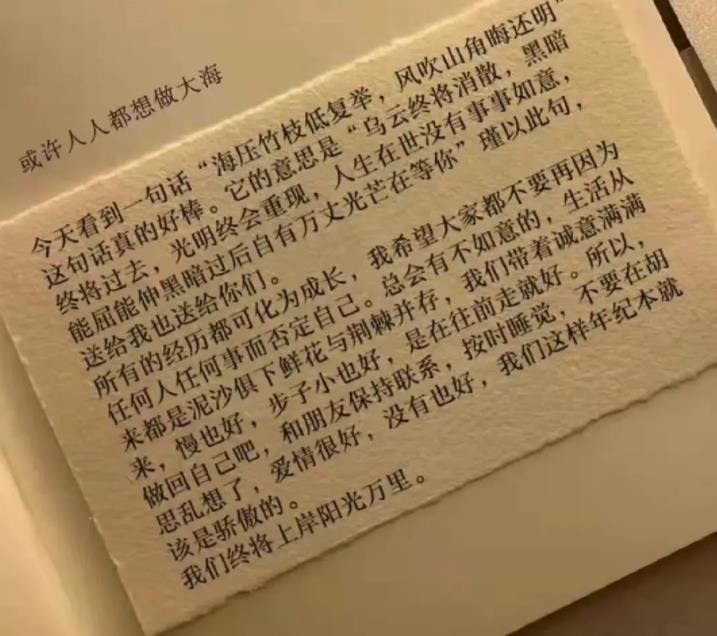 或许人人都想做大海
今天看到一句话“海压竹枝低复举，风吹山角晦还明”
这句话真的好棒。它的意思是“乌云终将消散，黑暗
终将过去，光明终会重现，人生在世没有事事如意，
能屈能伸黑暗过后自有万丈光芒在等你”瑾以此句，
送给我也送给你们。
所有的经历都可化为成长，我希望大家都不要再因为
任何人任何事而否定自己。总会有不如意的，生活从
来都是泥沙俱下鲜花与荆棘并存，我们带着诚意满满
来，慢也好，步子小也好，是在往前走就好。所以，
做回自己吧，和朋友保持联系，按时睡觉，不要在胡
思乱想了，爱情很好，没有也好，我们这样年纪本就
该是骄傲的。
我们终将上岸阳光万里。